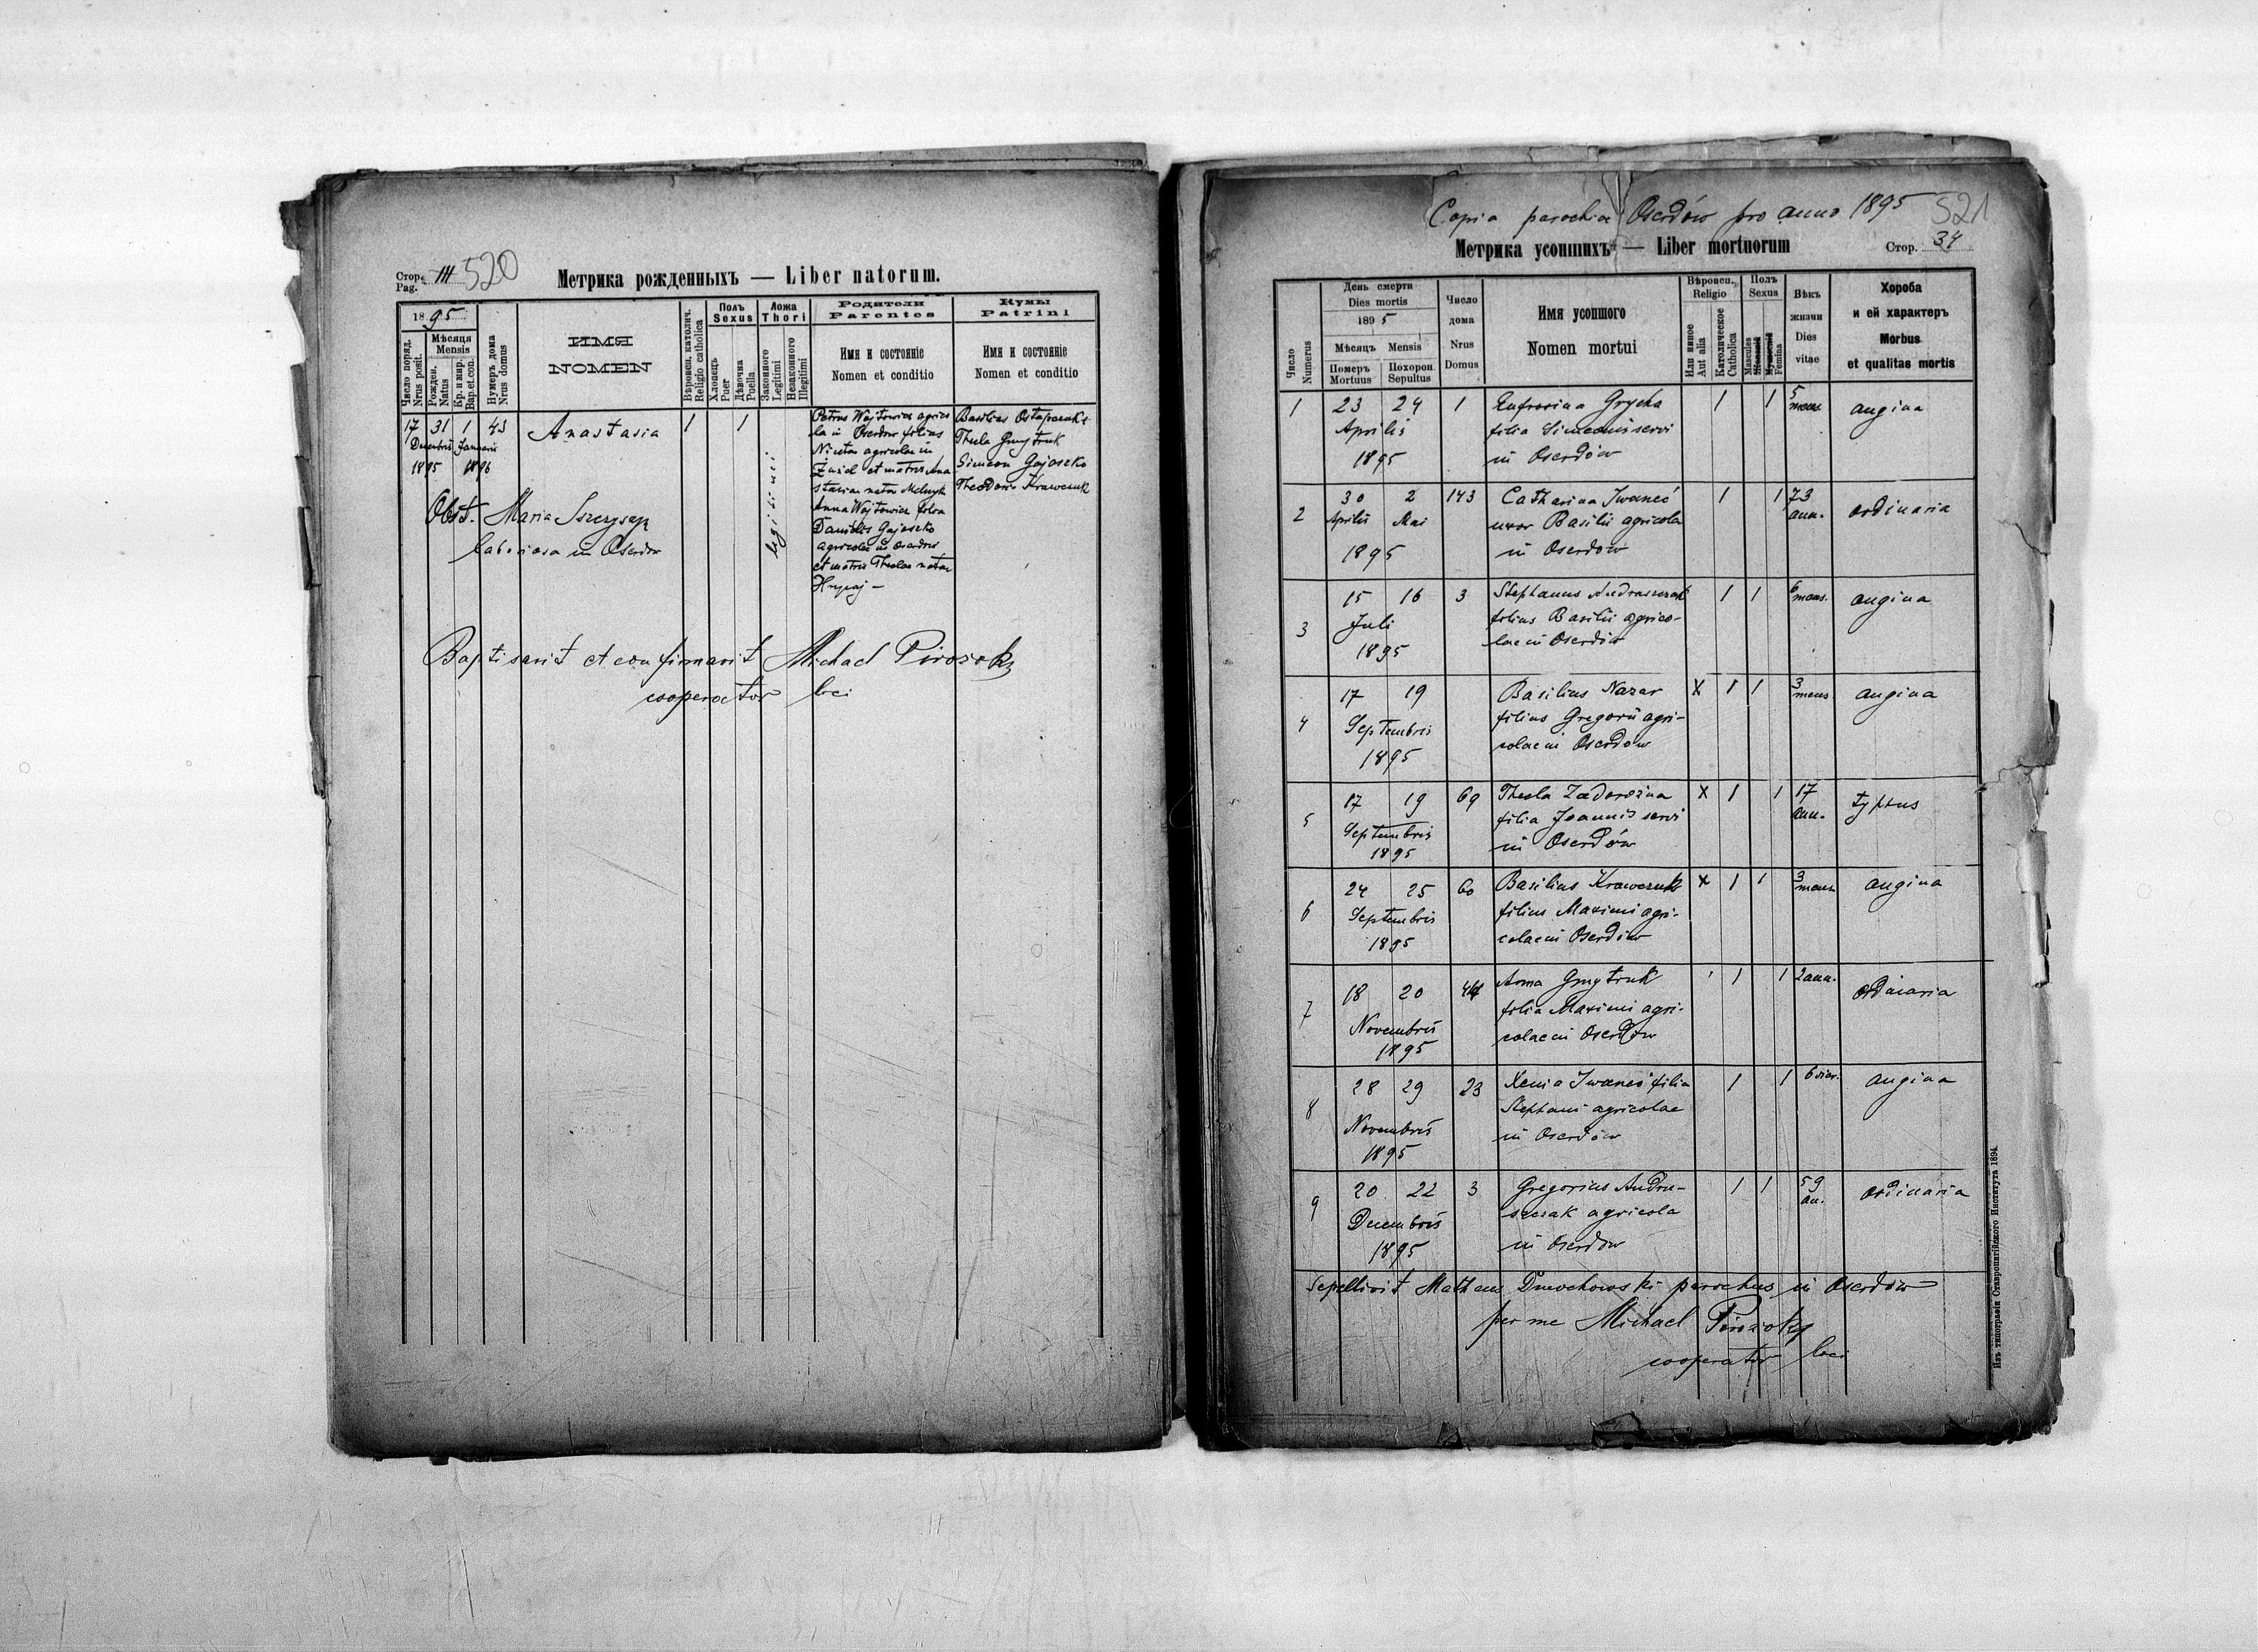 Стор. Pag. III 520
Метрика рожденныхъ — Liber natorum.
1895
Мѣсяця
Mensis
Число поряд.
Nrus posit.
Рожден.
Natus
Кр. и мир.
Bap. et con.
Нумеръ дома
Nrus domus
ИМЯ
NOMEN
Вѣроисп. католич.
Religio catholica
Полъ
Sexus
Хлопецъ
Puer
Дѣвочка
Puella
Ложа
Thori
Законного
Legitimi
Незаконного
Illegitimi
Родители
Parentes
Имя и состоянiе
Nomen et conditio
Кумы
Patrini
Имя и состоянiе
Nomen et conditio
17 31 1 43 Anastasia 1 1
Decembris Januarii
1895 1896
legitimi
Petrus Wojtowicz agrico
la in Oserdow filius
Nicetae agricolae in
et matris Ana
stasiae natae Melnyk
Anna Wojtowicz filia
Danielis Gajoszko
agricolae in Oserdow
et matris Theclae natae
Hrycaj —
Basilius Ostapczuk
Thecla Gmytruk
Simeon Gajoszko
Theodora Krawczuk
Obst. Maria
laboriosa in Oserdow
Baptisavit et confirmavit Michael
cooperator loci
Copia parochiae Oserdów pro anno 1895 521
Метрика усопшихъ — Liber mortuorum
Стор. 34
Число
Numerus
День смерти
Dies mortis
1895
Мѣсяцъ Mensis
Померъ
Mortuus
Похорон.
Sepultus
Число
дома
Nrus
Domus
Имя усопшого
Nomen mortui
Вѣроисп.
Religio
Или инное
Aut alia
Католическое
Catholica
Полъ
Sexus
Mascules
Femina
Вѣкъ
жизни
Dies
vitae
Хороба
и ей характеръ
Morbus
et qualitas mortis
1 23 24 1 Eufrosina Grycha 1 1 5 mens. angina
Aprilis filia Simeonis servi
1895 in Oserdów
2 30 2 143 Catharina Iwaneć 1 1 73 ann. ordinaria
Aprilis Mai uxor Basilii agricola
1895 in Oserdow
3 15 16 3 Stephanus Andruszczak 1 1 6 mens. angina
Juli filius Basilii agrico-
1895 lae in Oserdów
4 17 19 Basilius Nazar X 1 1 3 mens angina
Septembris filius Gregorii agri-
1895 colae in Oserdow
5 17 19 69 Thecla Zadorożna X 1 1 17 ann. typhus
Septembris filia Joannis servi
1895 in Oserdów
6 24 25 60 Basilius Krawczuk X 1 1 3 mens angina
Septembris filius Maximi agri-
1895 colae in Oserdów
7 18 20 44 Anna Gmytruk 1 1 2 ann. ordinaria
Novembris filia Maximi agri-
1895 colae in Oserdow
8 28 29 23 Xenia Iwaneć filia 1 1 6 angina
Novembris Stephani agricolae
1895 in Oserdów
9 20 22 3 Gregorius Andru- 1 1 59 an. ordinaria
Decembris szczak agricola
1895 in Oserdow
Sepelivit Matheus Dmochowski parochus in Oserdów
per me Michael
cooperator loci
Изъ типографiи Ставропигiйского Института 1894.